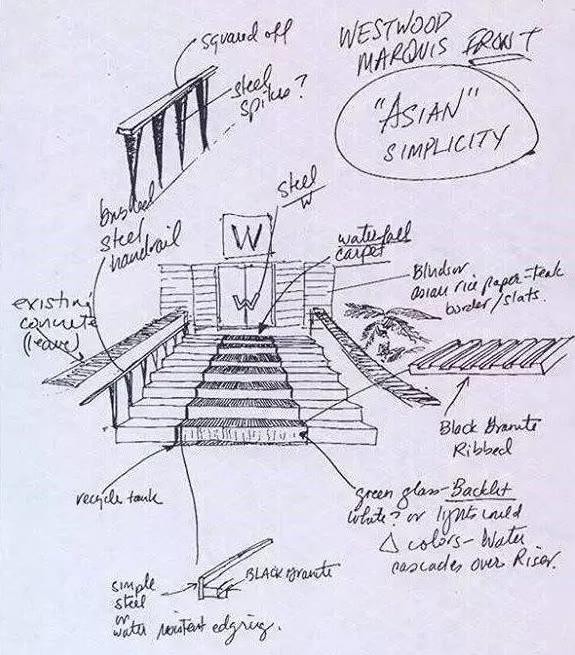 squared off
WESTWOOD
MARQUIS FRONT
"ASIAN"
SIMPLICITY
steel
spikes?
brushed
steel
handrail
steel
W
W
W
waterfall
carpet
Blinds or
asian rice paper-teak
border/slats.
existing
concrete
(leave)
Black Granite
Ribbed
recycle tank
green glass-Backlit
White? or lights could
Δ colors-Water
cascades over Riser.
BLACK Granite
simple
steel
or
water resistent edging.